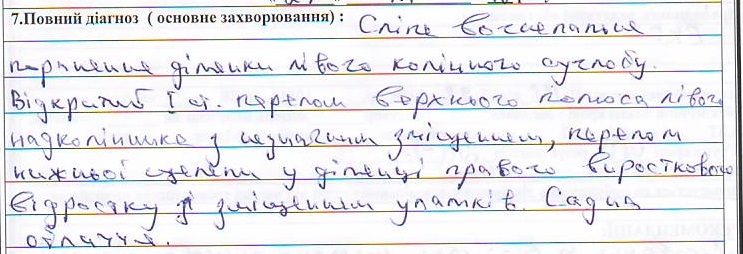 7.Повний діагноз ( основне захворювання) : Сліпе вогнепальне
поранення ділянки лівого колінного суглобу.
Відкритий I ст. перелом верхнього полюса лівого
надколінника з незначним зміщенням, перелом
нижньої щелепи у ділянці правого виросткового
відростку зі зміщенням уламків. Садна
обличчя.